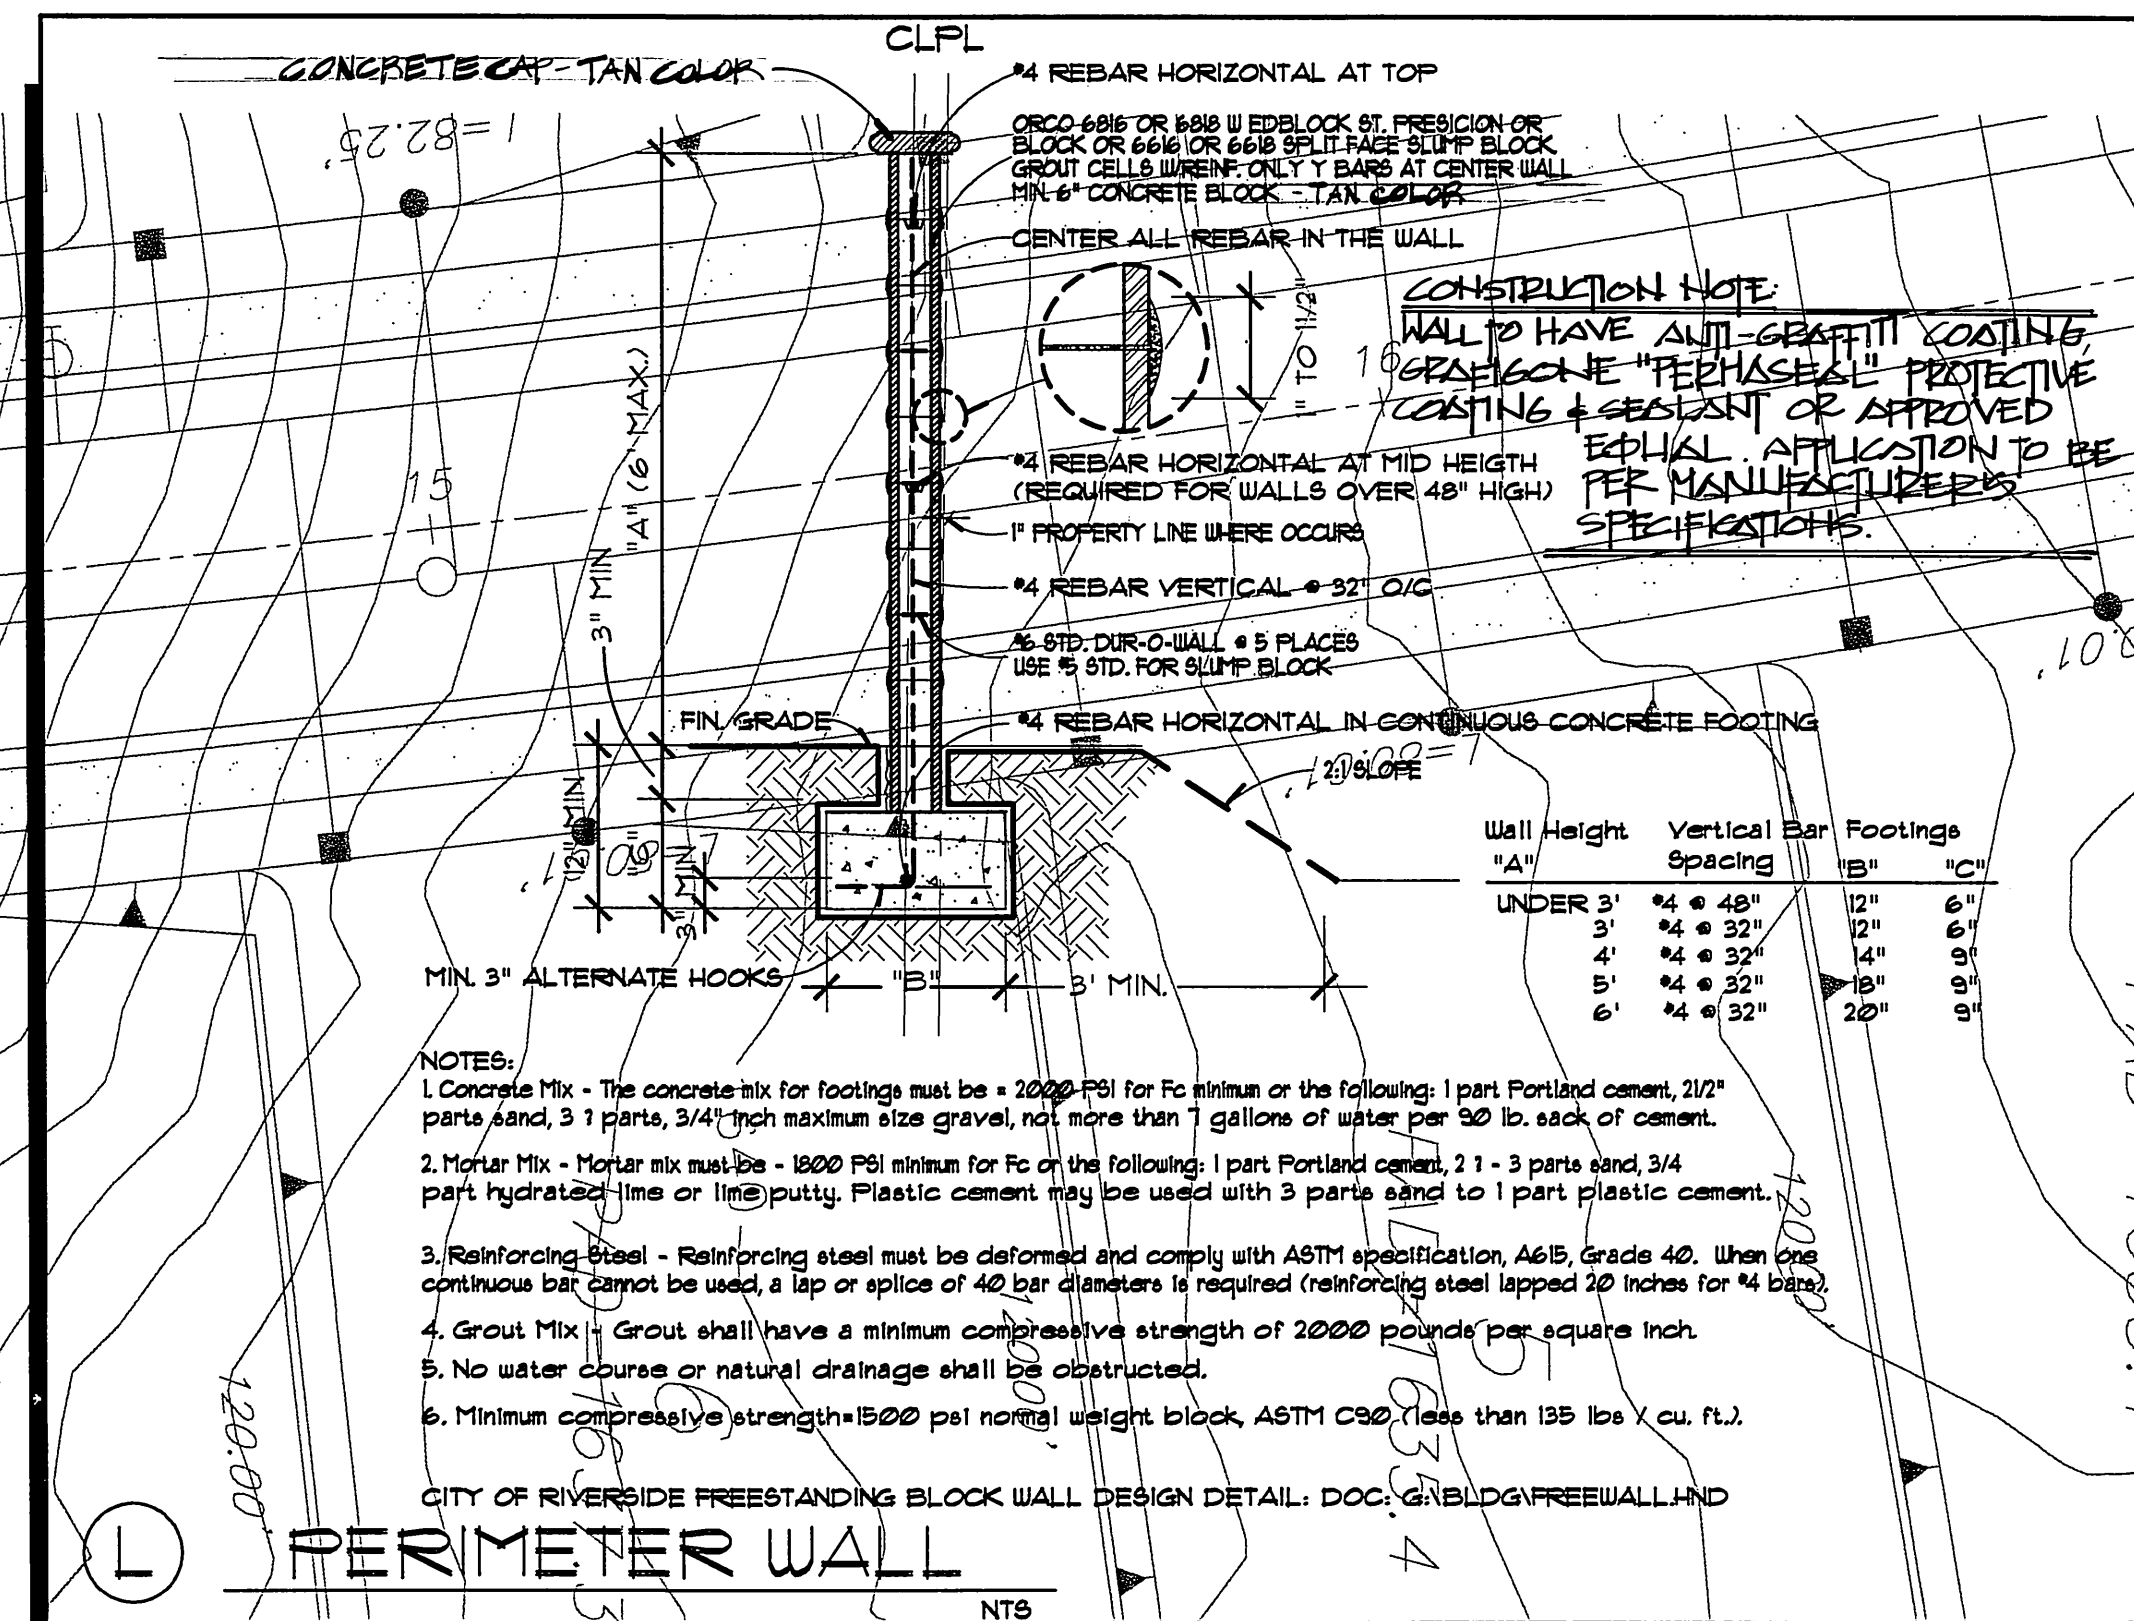 CLPL
CONCRETE CAP - TAN COLOR
#4 REBAR HORIZONTAL AT TOP
ORCO 6816 OR 6818 W EDBLOCK ST. PRESICION OR
BLOCK OR 6616 OR 6618 SPLIT FACE SLUMP BLOCK
GROUT CELLS W/REINF. ONLY Y BARS AT CENTER WALL
MIN. 6" CONCRETE BLOCK - TAN COLOR
CENTER ALL REBAR IN THE WALL
1" TO 1 1/2"
CONSTRUCTION NOTE:
WALL TO HAVE ANTI-GRAFFITI COATING,
"PERMASEAL" PROTECTIVE
COATING & SEALANT OR APPROVED
EQUAL. APPLICATION TO BE
PER MANUFACTURERS
SPECIFICATIONS.
"A" (6' MAX.)
3" MIN
#4 REBAR HORIZONTAL AT MID HEIGTH
(REQUIRED FOR WALLS OVER 48" HIGH)
1" PROPERTY LINE WHERE OCCURS
#4 REBAR VERTICAL @ 32" O/C
#6 STD. DUR-O-WALL @ 5 PLACES
USE #5 STD. FOR SLUMP BLOCK
FIN. GRADE
#4 REBAR HORIZONTAL IN CONTINUOUS CONCRETE FOOTING
2:1 SLOPE
3" MIN
MIN. 3" ALTERNATE HOOKS
"B"
3' MIN.
Wall Height Vertical Bar Footings
"A" Spacing "B" "C"
UNDER 3' #4 @ 48" 12" 6"
3' #4 @ 32" 12" 6"
4' #4 @ 32" 14" 9"
5' #4 @ 32" 18" 9"
6' #4 @ 32" 20" 9"
NOTES:
1. Concrete Mix - The concrete mix for footings must be = 2000 PSI for Fc minimum or the following: 1 part Portland cement, 21/2"
parts sand, 3 ? parts, 3/4" inch maximum size gravel, not more than 7 gallons of water per 90 lb. sack of cement.
2. Mortar Mix - Mortar mix must be - 1800 PSI minimum for Fc or the following: 1 part Portland cement, 2 ? - 3 parts sand, 3/4
part hydrated lime or lime putty. Plastic cement may be used with 3 parts sand to 1 part plastic cement.
3. Reinforcing Steel - Reinforcing steel must be deformed and comply with ASTM specification, A615, Grade 40. When one
continuous bar cannot be used, a lap or splice of 40 bar diameters is required (reinforcing steel lapped 20 inches for #4 bars).
4. Grout Mix - Grout shall have a minimum compressive strength of 2000 pounds per square inch.
5. No water course or natural drainage shall be obstructed.
6. Minimum compressive strength=1500 psi normal weight block, ASTM C90 (less than 135 lbs / cu. ft.).
CITY OF RIVERSIDE FREESTANDING BLOCK WALL DESIGN DETAIL: DOC: G:\BLDG\FREEWALL.HND
L PERIMETER WALL
NTS
15
16
120.00'
120.00'
120.00'